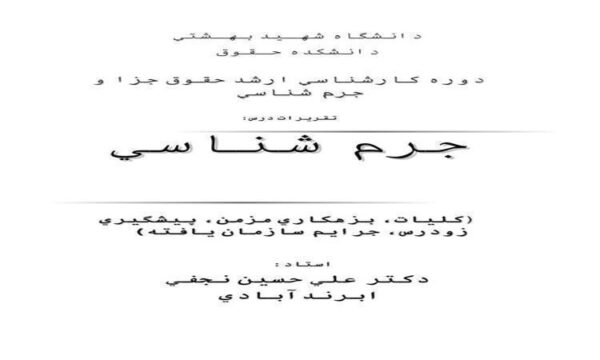 دانشگاه شهيد بهشتي
دانشكده حقوق
دوره كارشناسي ارشد حقوق جزا و
جرم شناسي
تقريرات درس:
جرم شناسي
(كليات، بزهكاري مزمن، پيشگيري
زودرس، جرايم سازمان يافته)
استاد:
دكتر علي حسين نجفي
ابرندآبادي